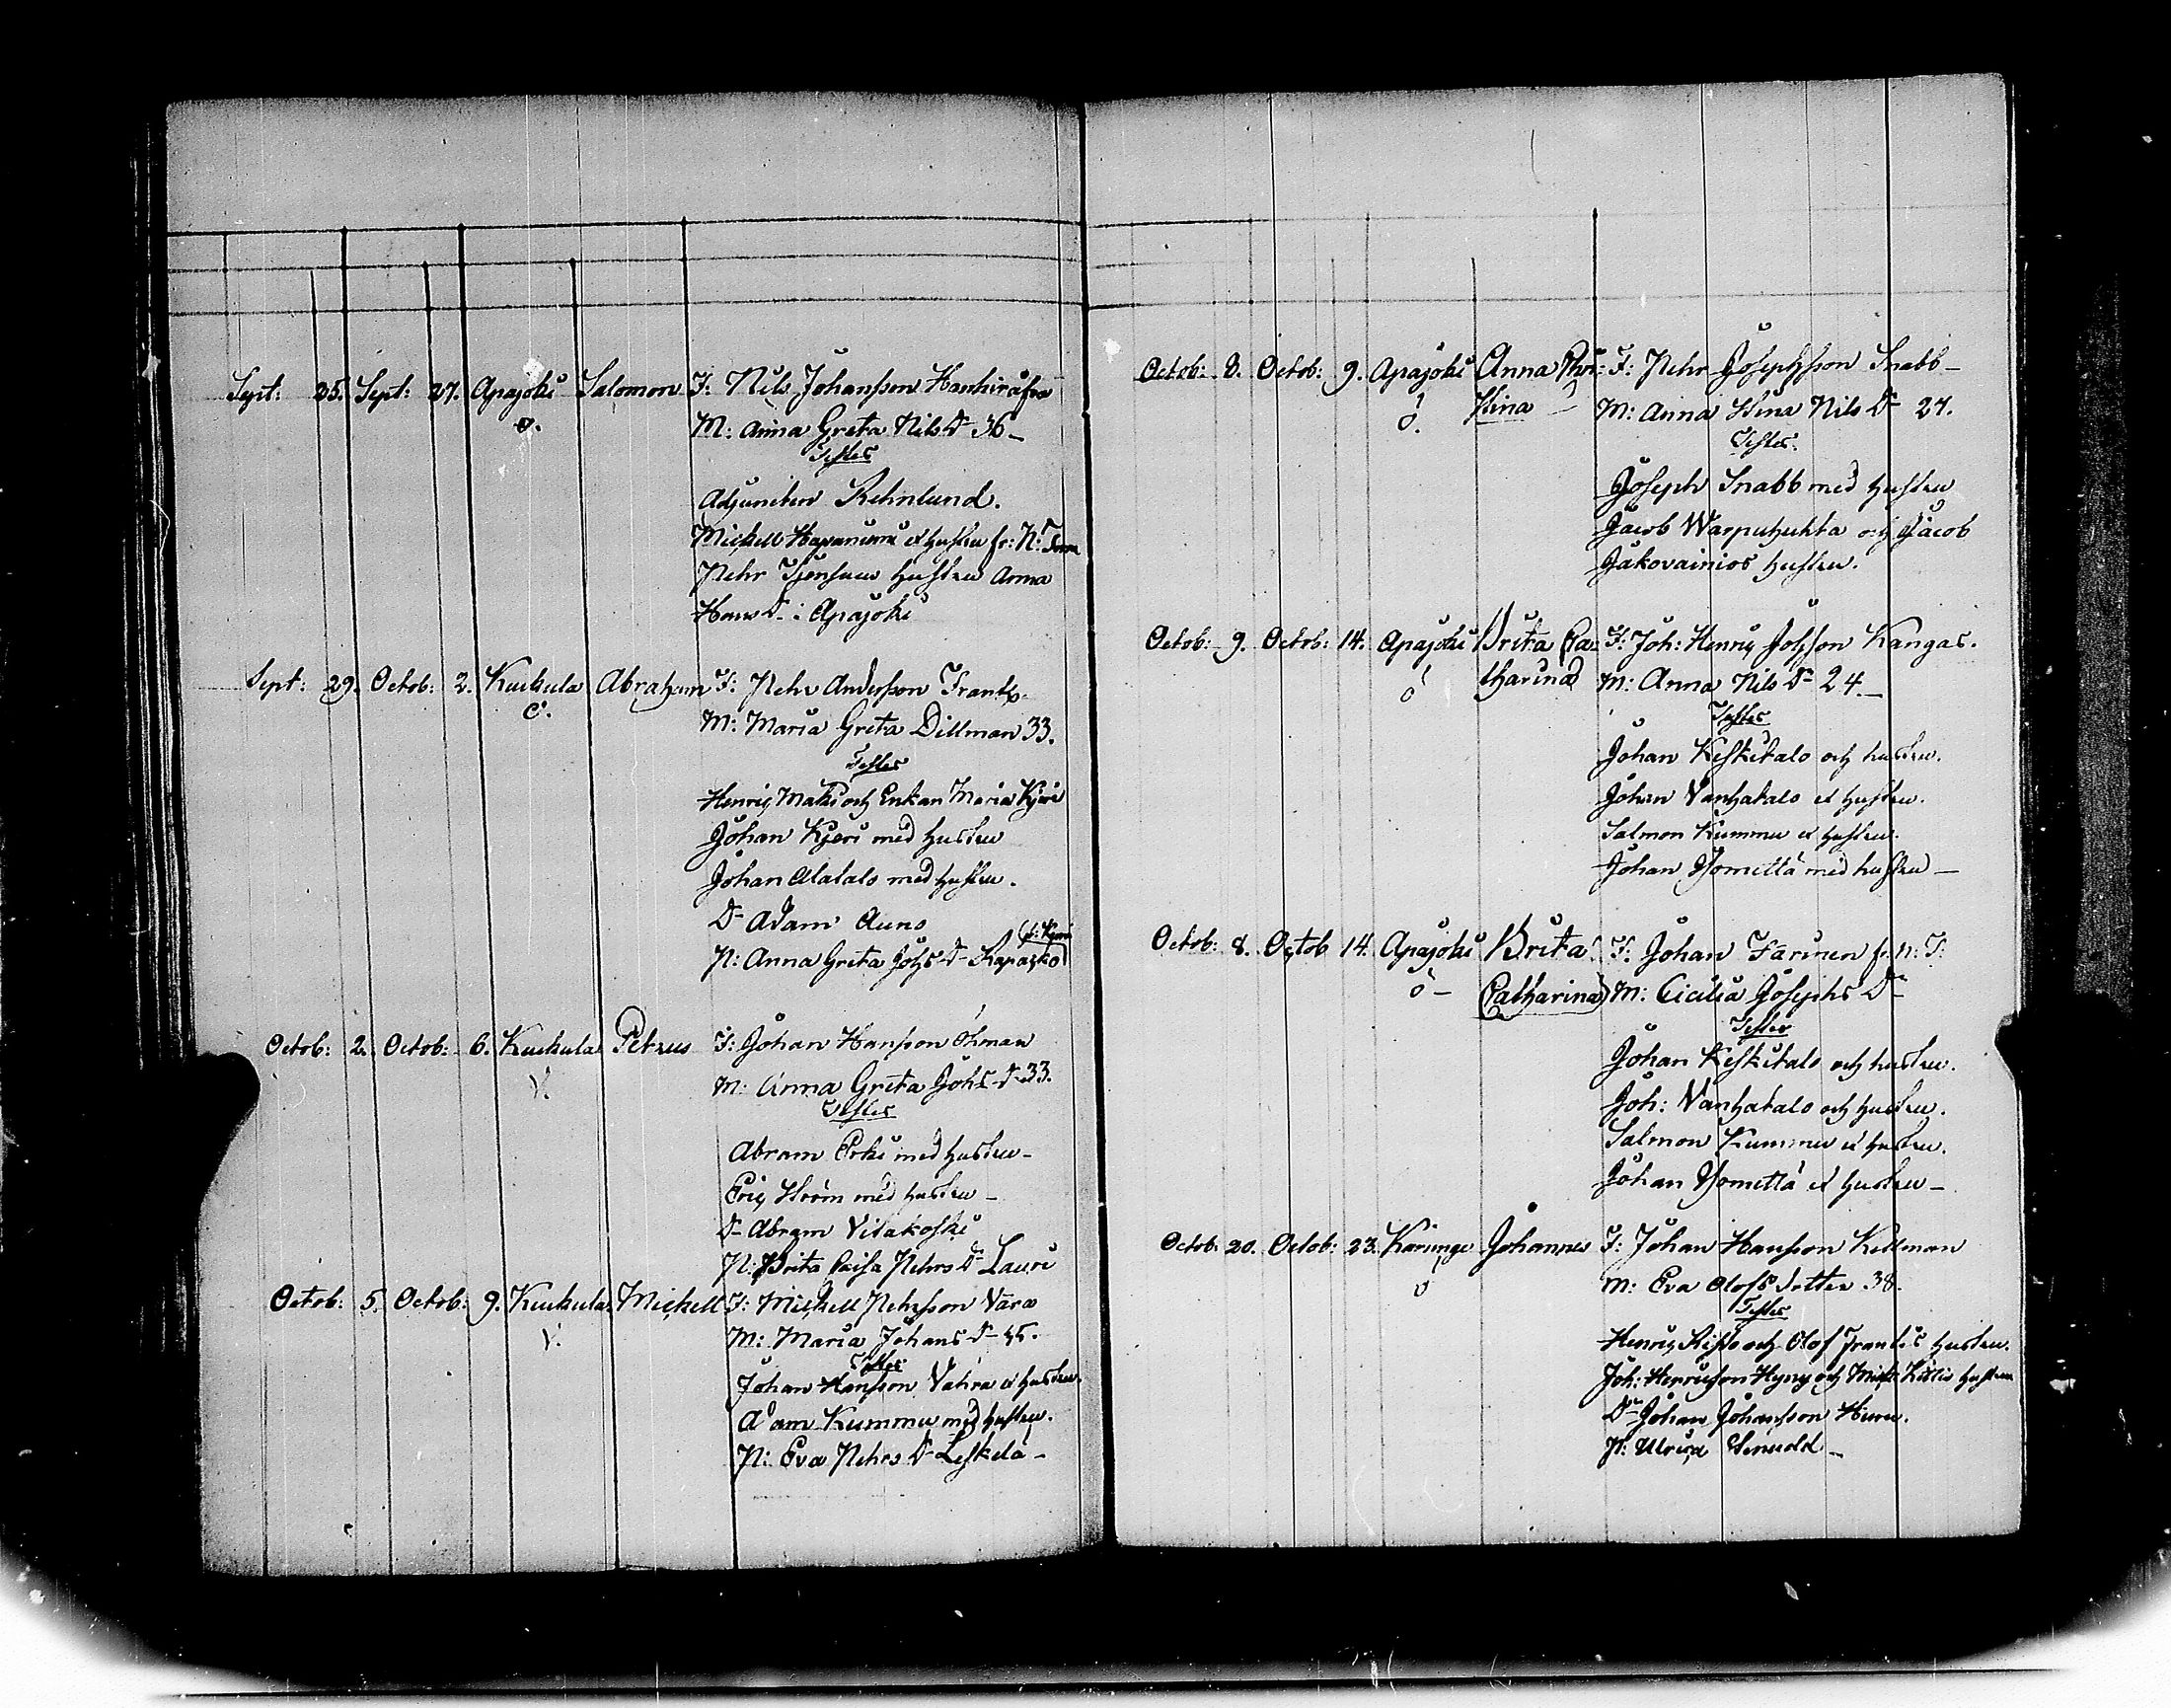 Sept: 25. Sept: 27. Apajoki Salomon F: Nils Johansson
ö. M: Anna Greta Nils Dr 36 –
Testes
Adjuncten Rehnlund.
Michell et hustru fr: N:
Pehr hustru Anna
Hans Dr i Apajoki
Sept: 29. Octob: 2. Kuckula Abraham F: Pehr Andersson Frantz
ö. M: Maria Greta Dillman 33.
Testes
Henric Maki och Enkan Maria Kjeri
Johan Kjeri med hustru
Johan Alatalo med hustru.
Dr Adam Auno
P: Anna Greta Johs Dr
Octob: 2. Octob: 6. Kuckula Petrus F: Johan Hansson Öhman
Y. M: Anna Greta Johs Dr 33.
Testes
Abram Erki med hustru –
Eric Ström med hustru –
Dr Abram Vitakoski
P: Brita Caisa Pehrs Dr Lauri
Octob: 5. Octob: 9. Kuckula Michell F: Michell Pehrsson Vara
Y. M: Maria Johans Dr
Testes
Johan Hansson Vahra et hustru.
Adam Kummu med hustru.
P: Eva Pehrs Dr Leskelä –
Octob: 8. Octob: 9. Apajoki Anna Chri- F: Pehr Josephsson Snabb –
ö. stina M: Anna Stina Nils Dr 27.
Testes.
Joseph Snabb med hustru
Jacob Warpuhuhta och Jacob
Jakovainios hustru.
Octob: 9. Octob: 14. Apajoki Brita Ca- F: Joh: Henric Johsson Kangas.
ö tharina M: Anna Nils Dr 24 –
Testes
Johan Keskitalo och hustru.
Johan Vanhatalo et hustru.
Salmon Kummu et hustru.
Johan med hustru –
Octob: 8. Octob 14. Apajoki Brita F: Johan Färinen fr. N: T:
ö – Catharina M: Cicilia Josephs Dr
Testes
Johan Keskitalo och hustru.
Joh: Vanhatalo och hustru.
Salmon Kummu et hustru.
Johan et hustru –
Octob: 20. Octob: 23. Karunge Johannes F: Johan Hansson Kellman
ö M: Eva Olofs dotter 38.
Testes
Henric och Olof Frantz's hustru.
Joh: Henricsson Hyny och Mich: hustru
Dr Johan Johansson
P: Ulrica